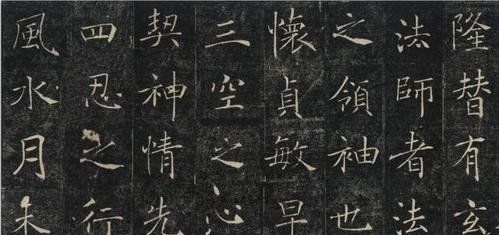 隆替有玄
法師者法
之領袖也
懷貞敏早
三空之心
契神情先
四忍之行
風水月未